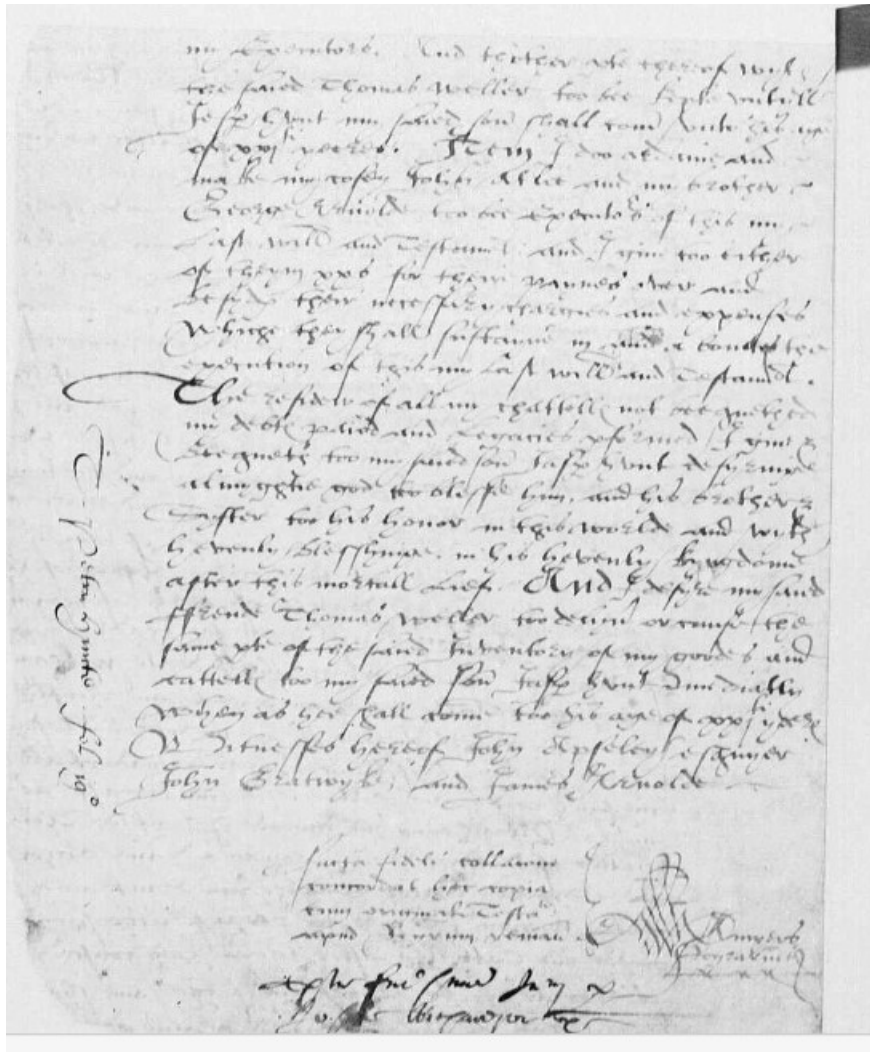 my Executors. And thother pte thereof wyth
the saied Thomas Weller too bee kepte untill
Jasp hunt my saied son shall com unto his age
of xxj yeeres. Item I doo ordaine and
make my cosen John Allie and my brother
George Arnolde too bee Executors of this my
Last will and Testamt. and I give too either
of theym xxs for their paynes over and
besyds their necessary charges and expenses
Whiche they shall susteine in and aboutes thee
execution of this my Last will and Testamt.
The residew of all my chattells not beequethed
my debts paied and Legacies pformed I give &
Beequeth too my saied son Jasp hunt desyringe
almyghtie god too blesse hym, and his brother &
Syster too his honor in this worlde and with
hevenly Blessynge in his hevenly kyngdome
after this mortall Lief. And I desyre my saied
ffrende Thomas Weller too deliv or cause the
same pte of the saied Inventory of my goodes and
cattells too my saied son Jasp hunt Imediatly
When as hee shall come too his age of xxj yeres
Witnesses hereof John Apseley esquyer
John Gratwyke, and James Arnolde
facta fideli collacione
concordat hec copia
cum originali Testo
apud Regrum reman